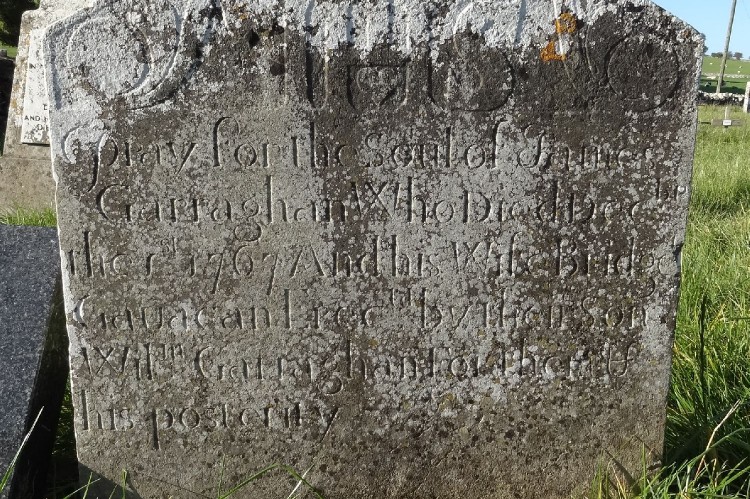 IHS
Pray for the Soul of James
Garraghan Who Died Dec.br
the 1st 1767 And his Wife Bridget
Gavacan Erec.td by their Son
Will.m Garraghan For them &
his posterity